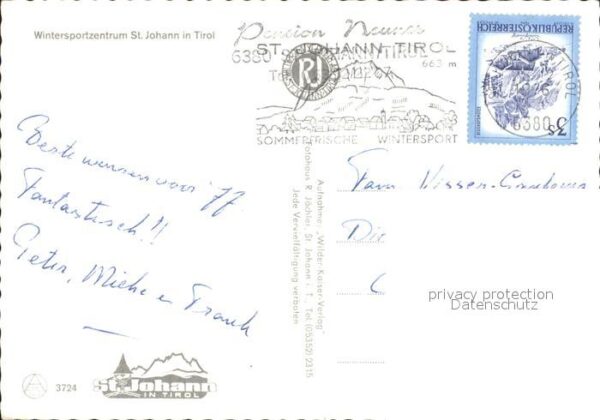 Wintersportzentrum St. Johann in Tirol
Pension
ST. JOHANN TIROL
6380
663 m
SOMMERFRISCHE WINTERSPORT
REPUBLIK ÖSTERREICH
S 3
6380
TIROL
Beste wensen voor '77.
Fantastisch!!
Peter, Mieke en Frank
Fam. Vissen-
Dir
C
privacy protection
Datenschutz
Aufnahme: „Wilder Kaiser-Verlag"
Fotohaus R. Jöchler, St. Johann i. T., Tel. (05352) 2315
Jede Vervielfältigung verboten
3724
St. Johann
IN TIROL